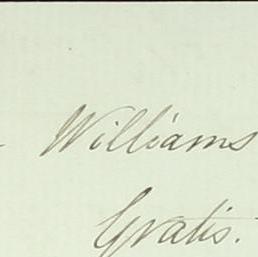 Williams
Gratis.